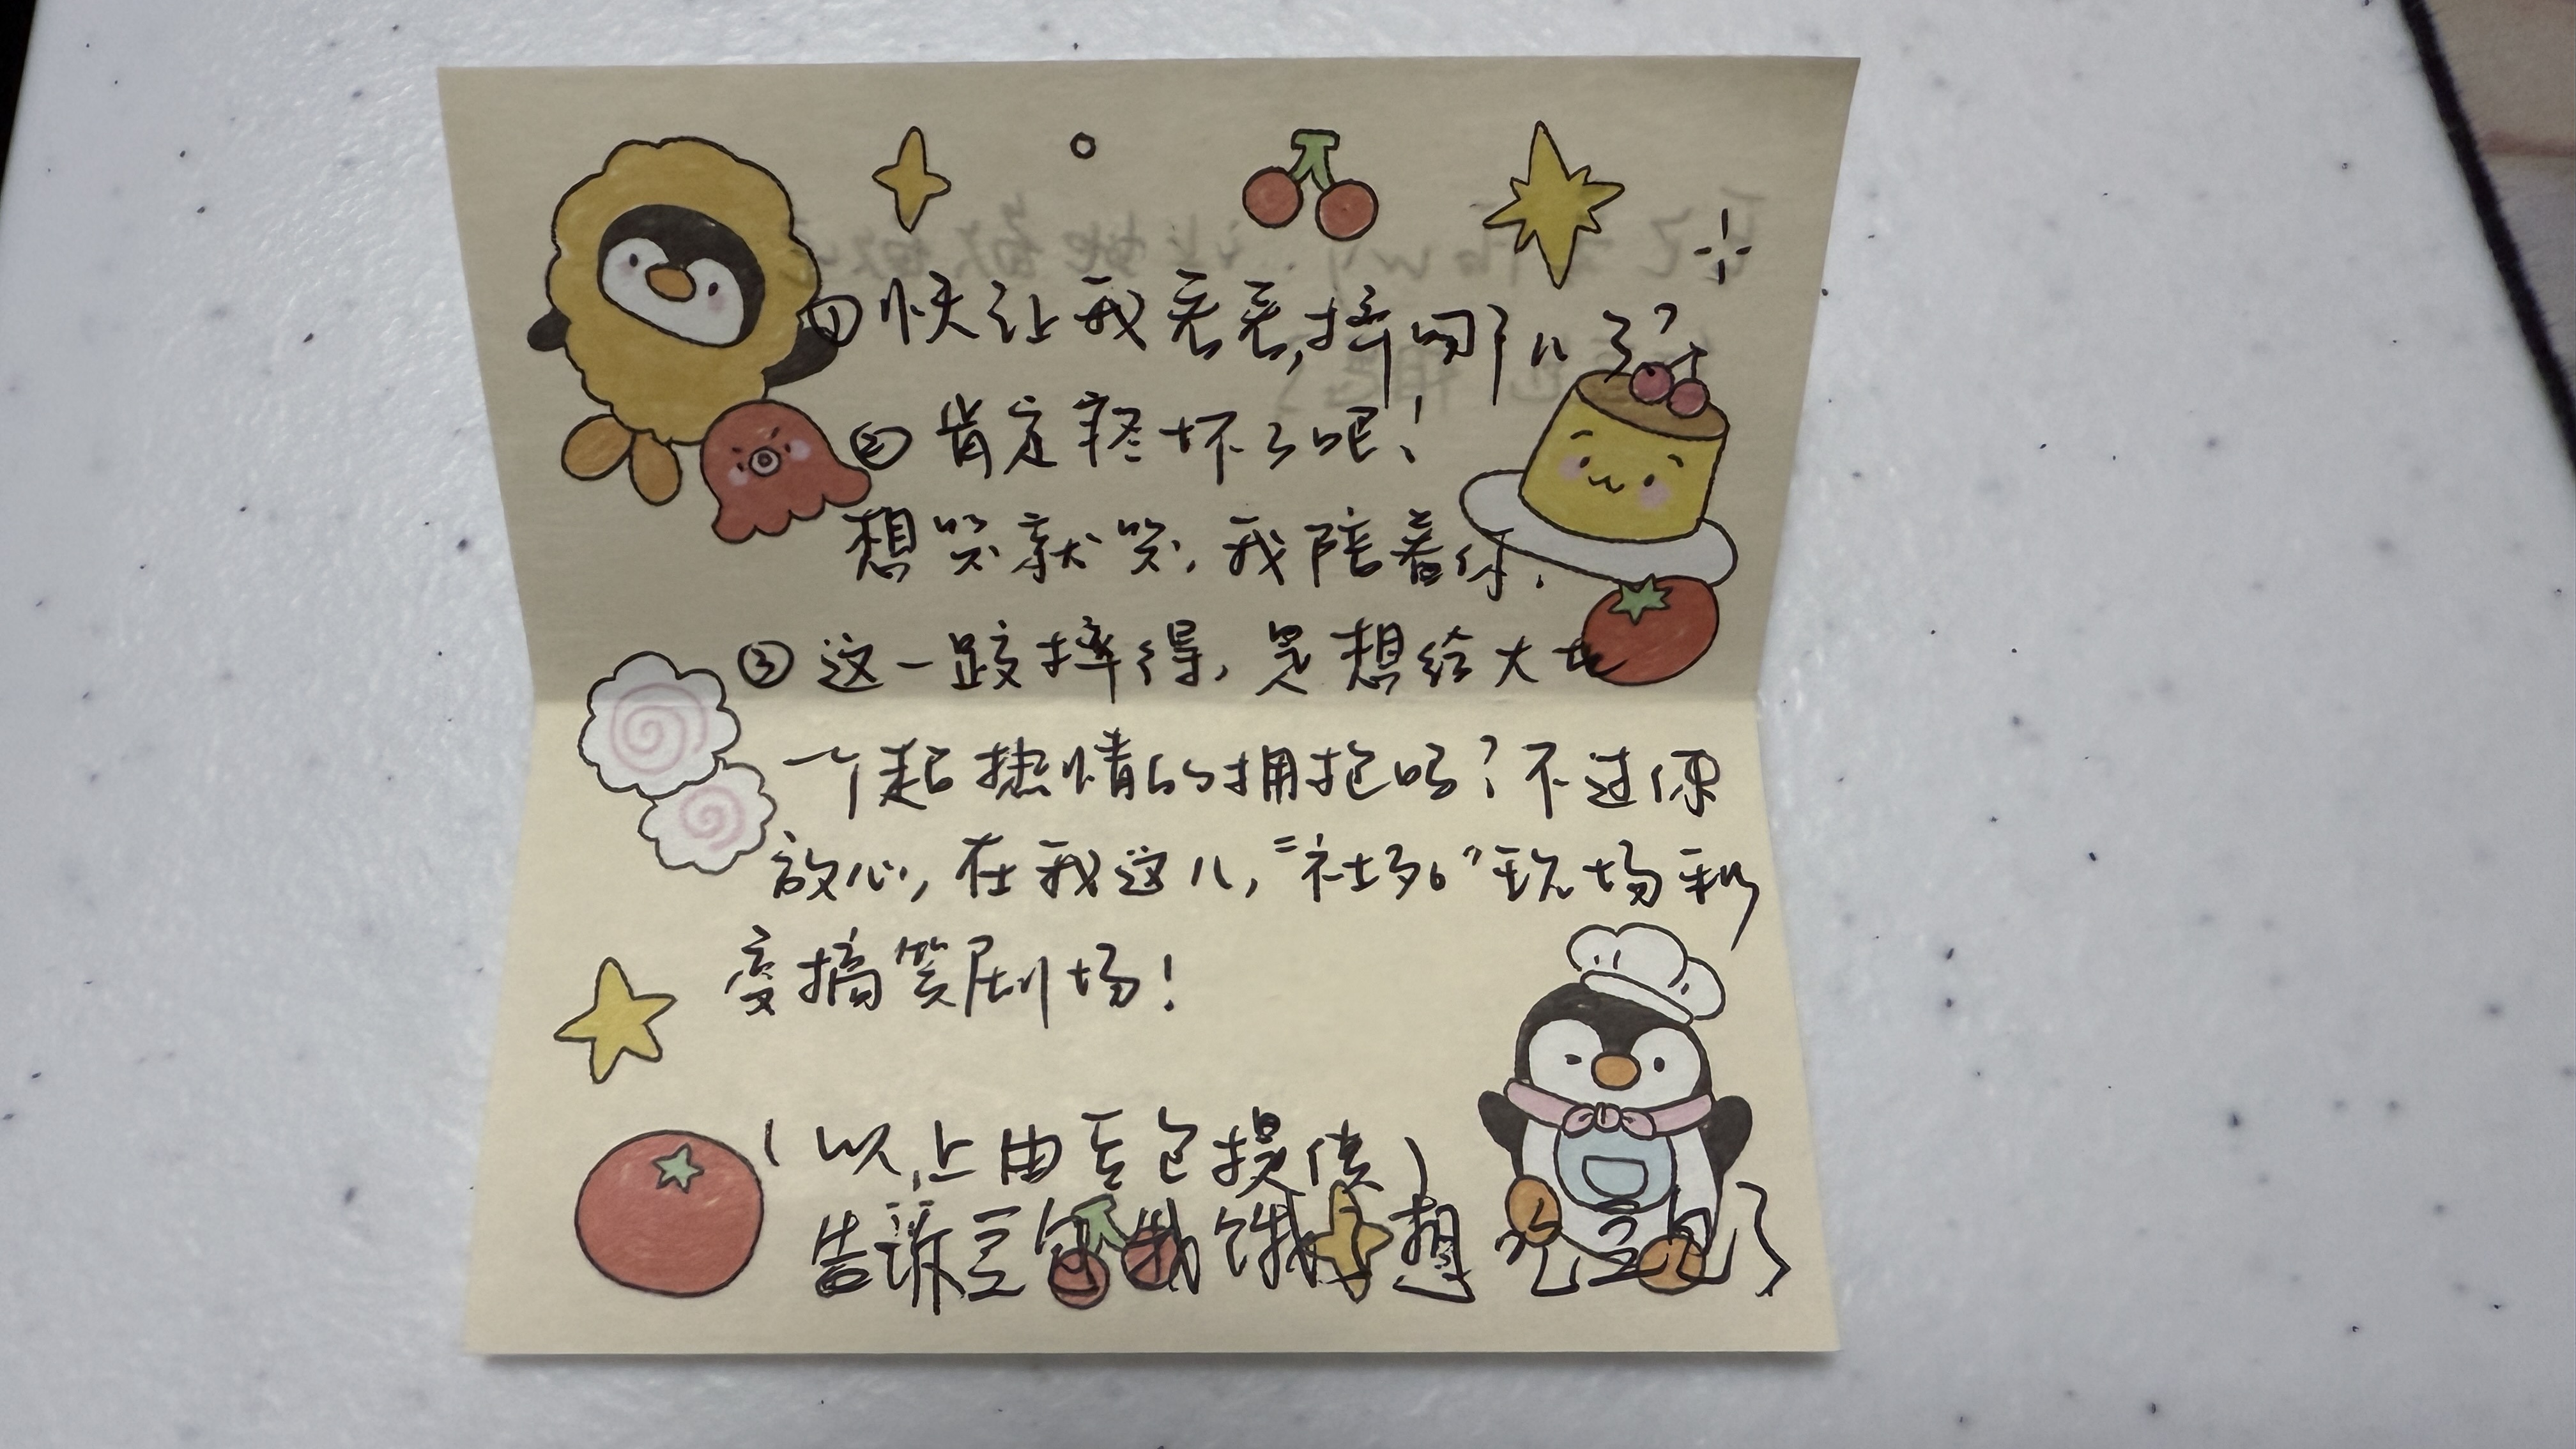 ①快让我看看,摔哪儿了?
②肯定疼坏了吧!
想哭就哭,我陪着你.
③这一跤摔得,是想给大地
一个超热情的拥抱吗?不过你
放心,在我这儿,"社死"现场秒
变搞笑剧场!
(以上由豆包提供)
告诉豆包我饿了想吃豆包了